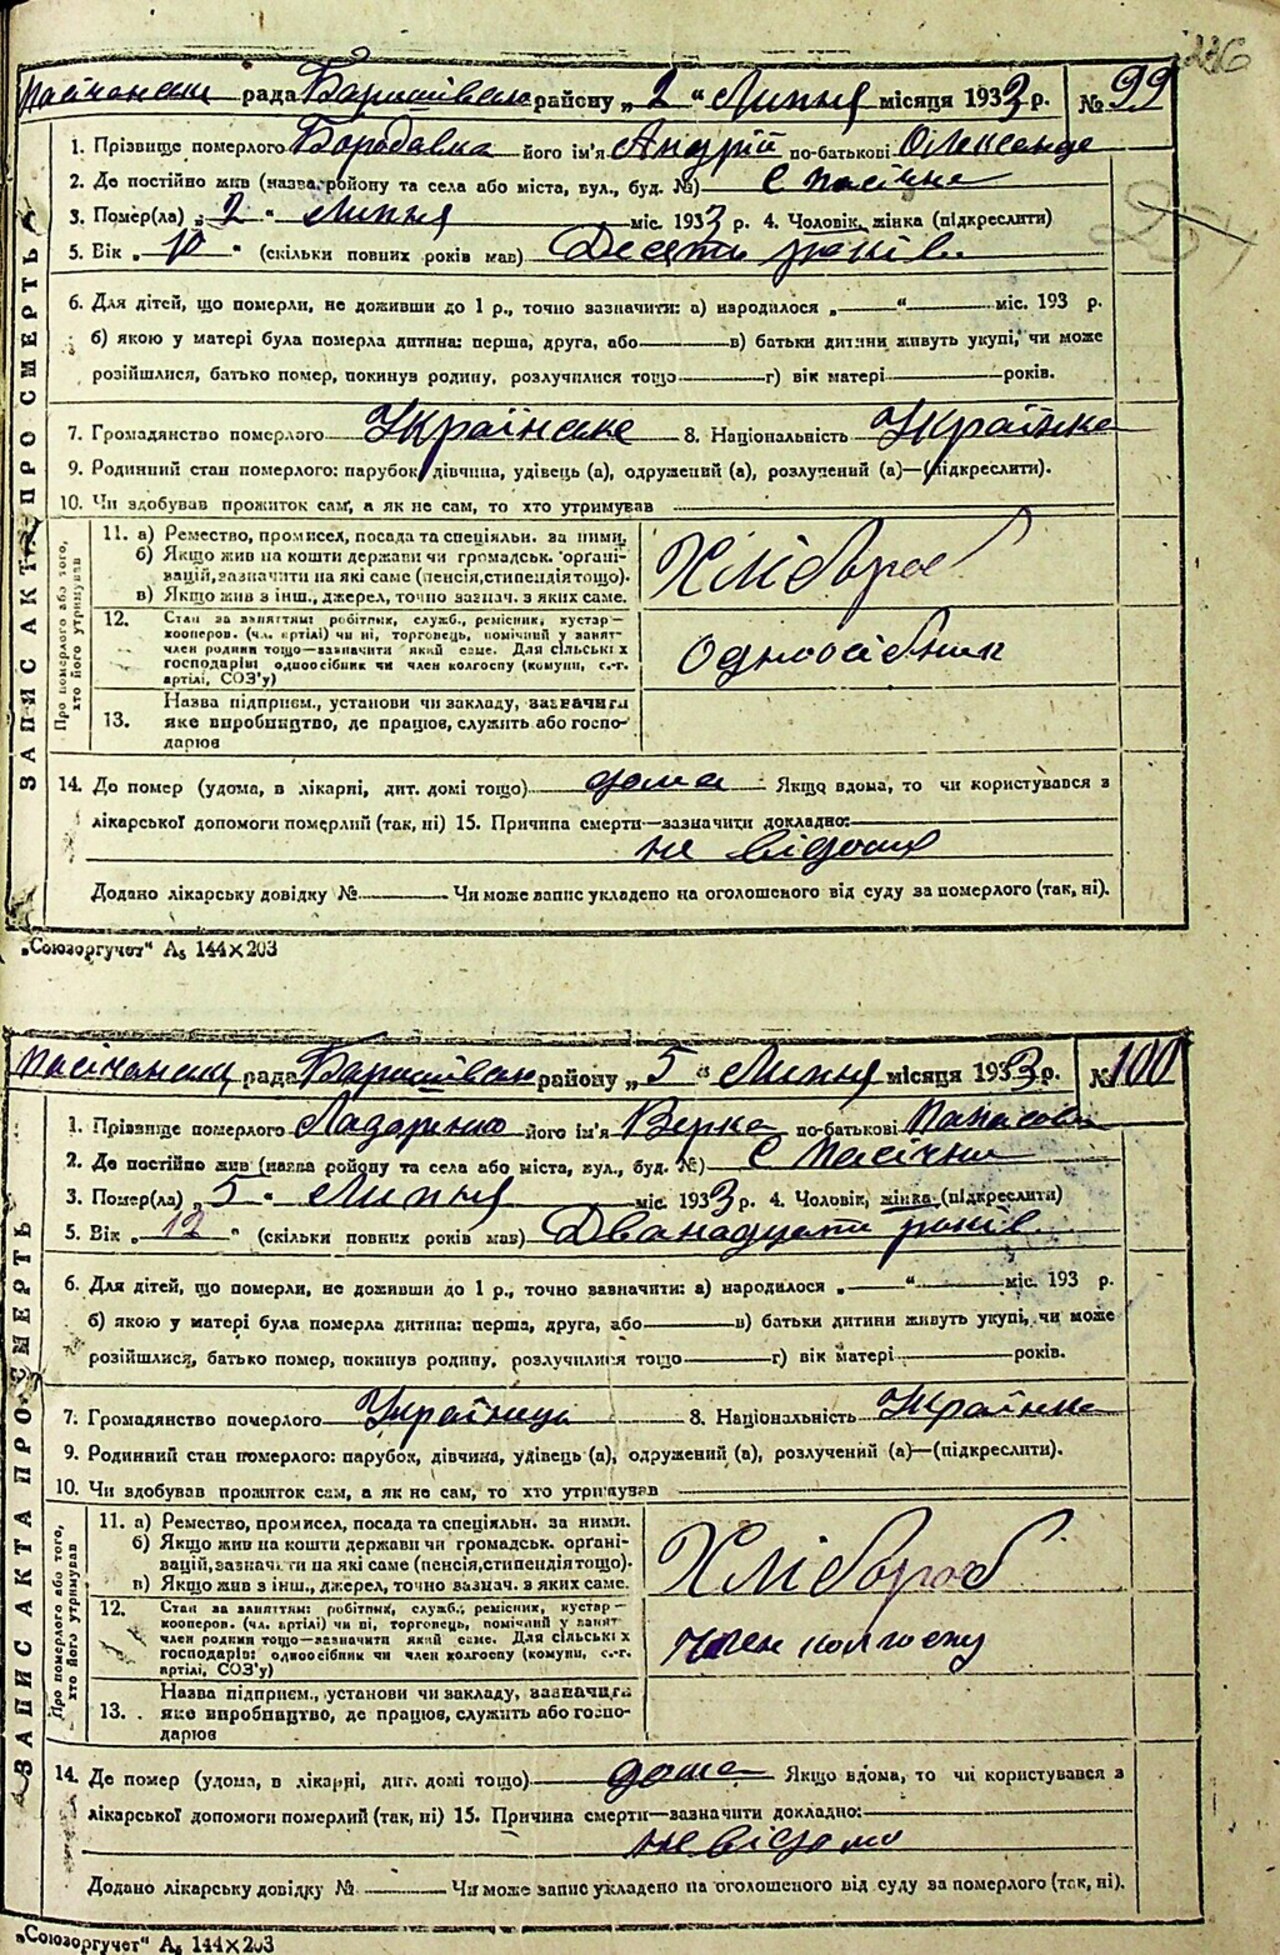 236
Пасічанськ рада Баришівськ району „ 2 “ Липня місяця 1933 р. № 99
1. Прізвище померлого Бородавка його ім'я Андрій по-батькові Олександ
2. Де постійно жив (назва району та села або міста, вул., буд. №) с Пасічна
3. Помер(ла) „ 2 “ Липня міс. 1933 р. 4. Чоловік, жінка (підкреслити)
5. Вік „ 10 “ (скільки повних років мав) Десять років
6. Для дітей, що померли, не доживши до 1 р., точно зазначити: а) народилося „ “ міс. 193 р.
б) якою у матері була померла дитина: перша, друга, або в) батьки дитини живуть укупі, чи може
розійшлися, батько помер, покинув родину, розлучилися тощо г) вік матері років.
7. Громадянство померлого Українське 8. Національність Українка
9. Родинний стан померлого: парубок, дівчина, удівець (а), одружений (а), розлучений (а)—(підкреслити).
10. Чи здобував прожиток сам, а як не сам, то хто утримував
ЗАПИС АКТА ПРО СМЕРТЬ
Про померлого або того, хто його утримував
11. а) Ремество, промисел, посада та спеціяльн. за ними.
б) Якщо жив на кошти держави чи громадськ. орґані-
зацій, зазначити на які саме (пенсія, стипендія тощо).
в) Якщо жив з інш., джерел, точно зазнач. з яких саме.
Хлібороб
12. Стан за заняттям: робітник, служб., ремісник, кустар—
кооперов. (чл. артілі) чи ні, торговець, помічний у занят.
член родини тощо—зазначити який саме. Для сільськіх
господарів: одноосібник чи член колгоспу (комуни, с.-г.
артілі, СОЗ'у)
Одноосібник
13. Назва підприєм., установи чи закладу, зазначити
яке виробництво, де працює, служить або госпо-
дарює
14. Де помер (удома, в лікарні, дит. домі тощо) дома Якщо вдома, то чи користувався з
лікарської допомоги померлий (так, ні) 15. Причина смерти—зазначити докладно:
не відома
Додано лікарську довідку № Чи може запис укладено на оголошеного від суду за померлого (так, ні).
„Союзоргучет“ А₅ 144×203
Пасічанськ рада Баришівськ району „ 5 “ Липня місяця 1933 р. № 100
1. Прізвище померлого Лазаренко його ім'я Вєрка по-батькові Панасови
2. Де постійно жив (назва району та села або міста, вул., буд. №) с Пасічни
3. Помер(ла) „ 5 “ Липня міс. 1933 р. 4. Чоловік, жінка (підкреслити)
5. Вік „ 12 “ (скільки повних років мав) Дванадцять років
6. Для дітей, що померли, не доживши до 1 р., точно зазначити: а) народилося „ “ міс. 193 р.
б) якою у матері була померла дитина: перша, друга, або в) батьки дитини живуть укупі, чи може
розійшлися, батько помер, покинув родину, розлучилися тощо г) вік матері років.
7. Громадянство померлого 8. Національність Українка
9. Родинний стан померлого: парубок, дівчина, удівець (а), одружений (а), розлучений (а)—(підкреслити).
10. Чи здобував прожиток сам, а як не сам, то хто утримував
ЗАПИС АКТА ПРО СМЕРТЬ
Про померлого або того, хто його утримував
11. а) Ремество, промисел, посада та спеціяльн. за ними.
б) Якщо жив на кошти держави чи громадськ. орґані-
зацій, зазначити на які саме (пенсія, стипендія тощо).
в) Якщо жив з інш., джерел, точно зазнач. з яких саме.
Хлібороб
12. Стан за заняттям: робітник, служб., ремісник, кустар—
кооперов. (чл. артілі) чи ні, торговець, помічний у занят.
член родини тощо—зазначити який саме. Для сільськіх
господарів: одноосібник чи член колгоспу (комуни, с.-г.
артілі, СОЗ'у)
член колгоспу
13. Назва підприєм., установи чи закладу, зазначити
яке виробництво, де працює, служить або госпо-
дарює
14. Де помер (удома, в лікарні, дит. домі тощо) дома Якщо вдома, то чи користувався з
лікарської допомоги померлий (так, ні) 15. Причина смерти—зазначити докладно:
не відомо
Додано лікарську довідку № Чи може запис укладено на оголошеного від суду за померлого (так, ні).
„Союзоргучет“ А₅ 144×203